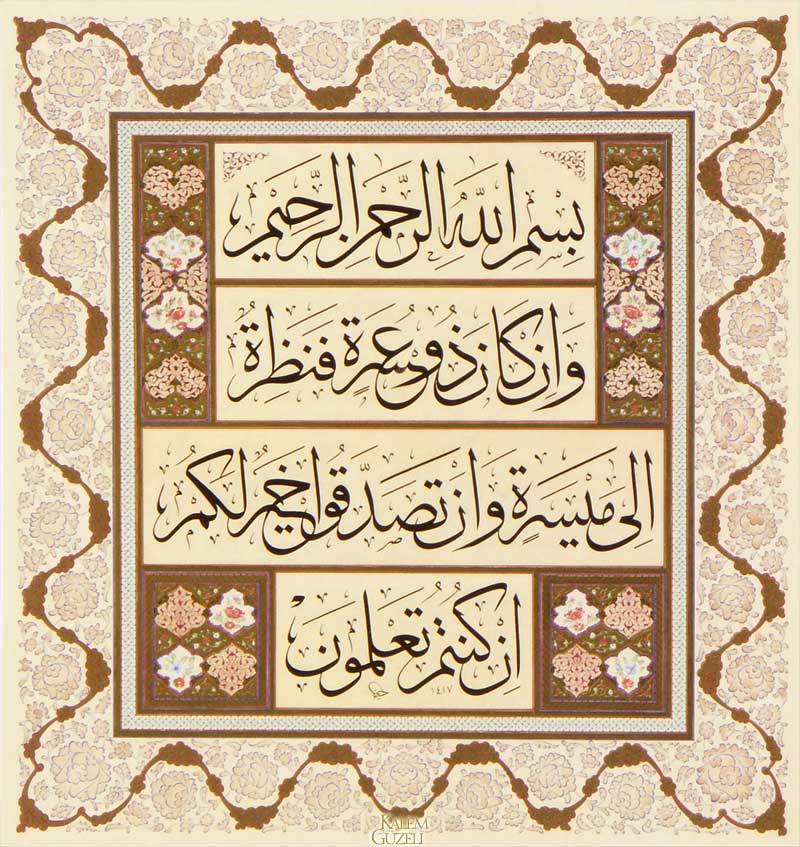 بِسْمِ اللهِ الرَّحْمنِ الرَّحِيمِ
وَاِنْ كَانَ ذُو عُسْرَةٍ فَنَظِرَةٌ
اِلٰى مَيْسَرَةٍ وَاَنْ تَصَدَّقُوا خَيْرٌ لَكُمْ
اِنْ كُنْتُمْ تَعْلَمُونَ
١٤١٧
KALEM
GUZELİ